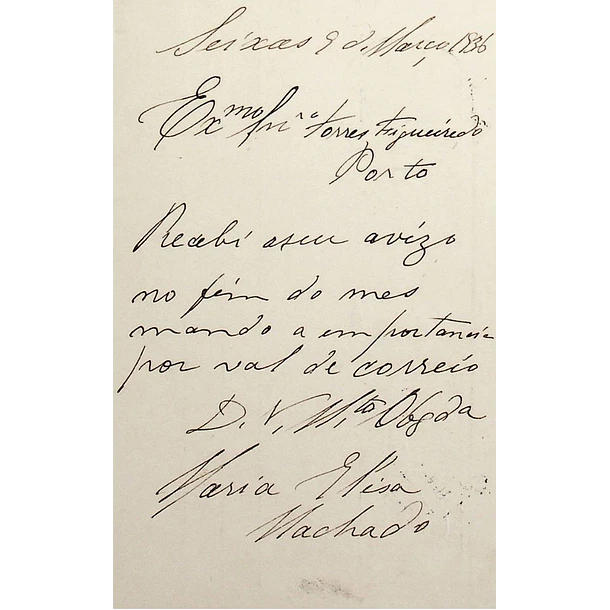 Seixas 9 d. Março, 1936
Exmo Snr. Torres, Figueiredo
Porto
Recebi aseu avizo
no fim do mes
mando a importancia
por val de correio
D. V. Mto Obgda
Maria Elisa
Machado